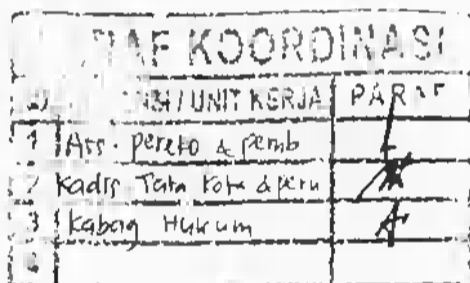 KOORDINASI
UNIT KERJA PARAF
1 Ass. pereko & pemb
2 Kadis Tata Kota & peru
3 Kabag Hukum
4